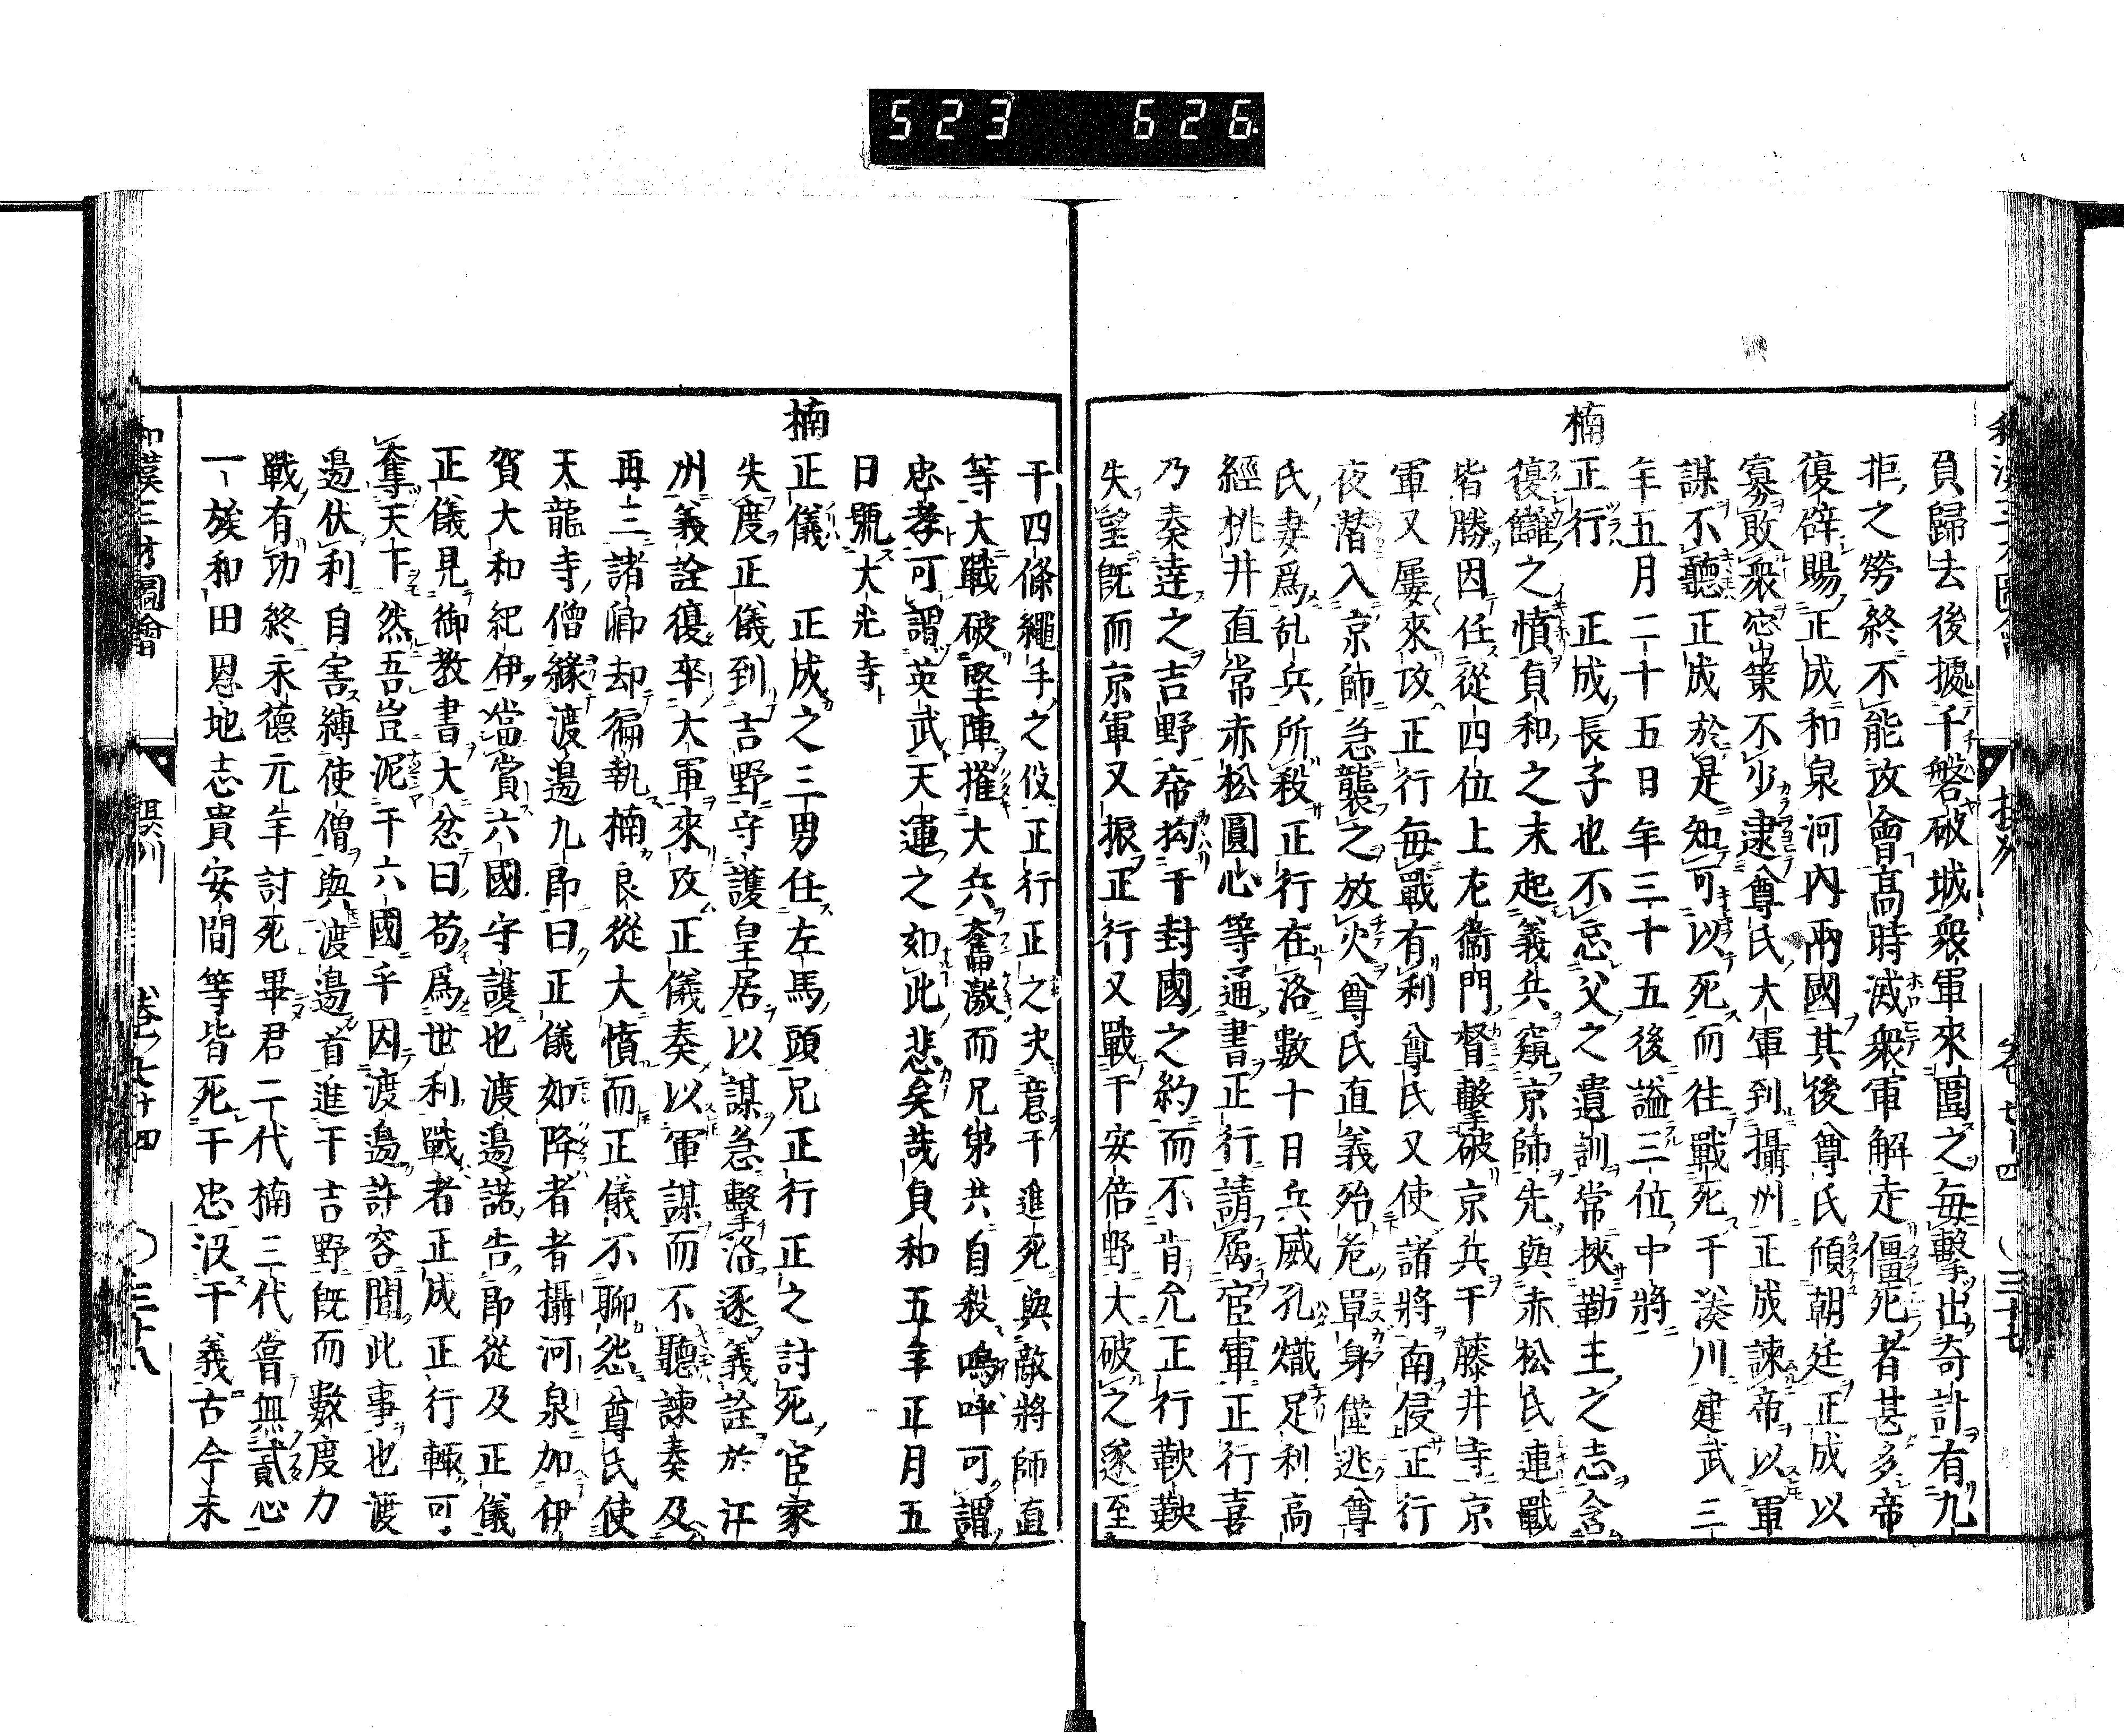 523 626
負歸去後據千磐破城衆軍來圍之毎擊出奇計有九
拒之勞終不能攻會高時滅衆軍解走僵死者甚多帝
復辟賜正成和泉河內兩國其後尊氏傾朝廷正成以
寡敗衆密策不少逮尊氏大軍到攝州正成諫帝以軍
謀不聽正成於是知可以死而往戰死于湊川建武三
年五月二十五日年三十五後謚三位中將
楠
正行 正成長子也不忘父之遺訓常挾勤王之志含
復讎之憤負和之末起義兵窺京師先與赤松氏連戰
皆勝因任從四位上左衞門督擊破京兵于藤井寺京
軍又屢來攻正行毎戰有利尊氏又使諸將南侵正行
夜潛入京師急襲之放火尊氏直義殆危單身僅逃尊
氏妻爲乱兵所殺正行在洛數十日兵威孔熾足利高
經桃井直常赤松圓心等通書正行請屬官軍正行喜
乃奏達之吉野帝拘于封國之約而不肯允正行鞅鞅
失望旣而京軍又振正行又戰于安倍野大破之遂至
于四條繩手之役正行正之決意于進死與敵將師直
等大戰破堅陣摧大兵奮激而兄弟共自殺嗚呼可謂
忠孝可謂英武天運之如此悲矣哉負和五年正月五
日號大光寺
楠
正儀 正成之三男任左馬頭兄正行正之討死官家
失度正儀到吉野守護皇居以謀急擊洛逐義詮於江
州義詮復率大軍來攻正儀奏以軍謀而不聽諫奏及
再三諸卿却偏執楠良從大憤而正儀不聊怨尊氏使
天龍寺僧緣渡邉九郎曰正儀如降者者攝河泉加伊
賀大和紀伊當賞六國守護也渡邉諾告郎從及正儀
正儀見御教書大忿曰苟爲世利戰者正成正行輙可
奪天下然吾豈泥于六國乎因渡邉許容聞此事也渡
邉伏利自害縛使僧與渡邉首進于吉野旣而數度力
戰有功終永德元年討死畢君二代楠三代嘗無貳心
一族和田恩地志貴安間等皆死于忠沒于義古今未
和漢三才圖會
卷七十四 〇三十八